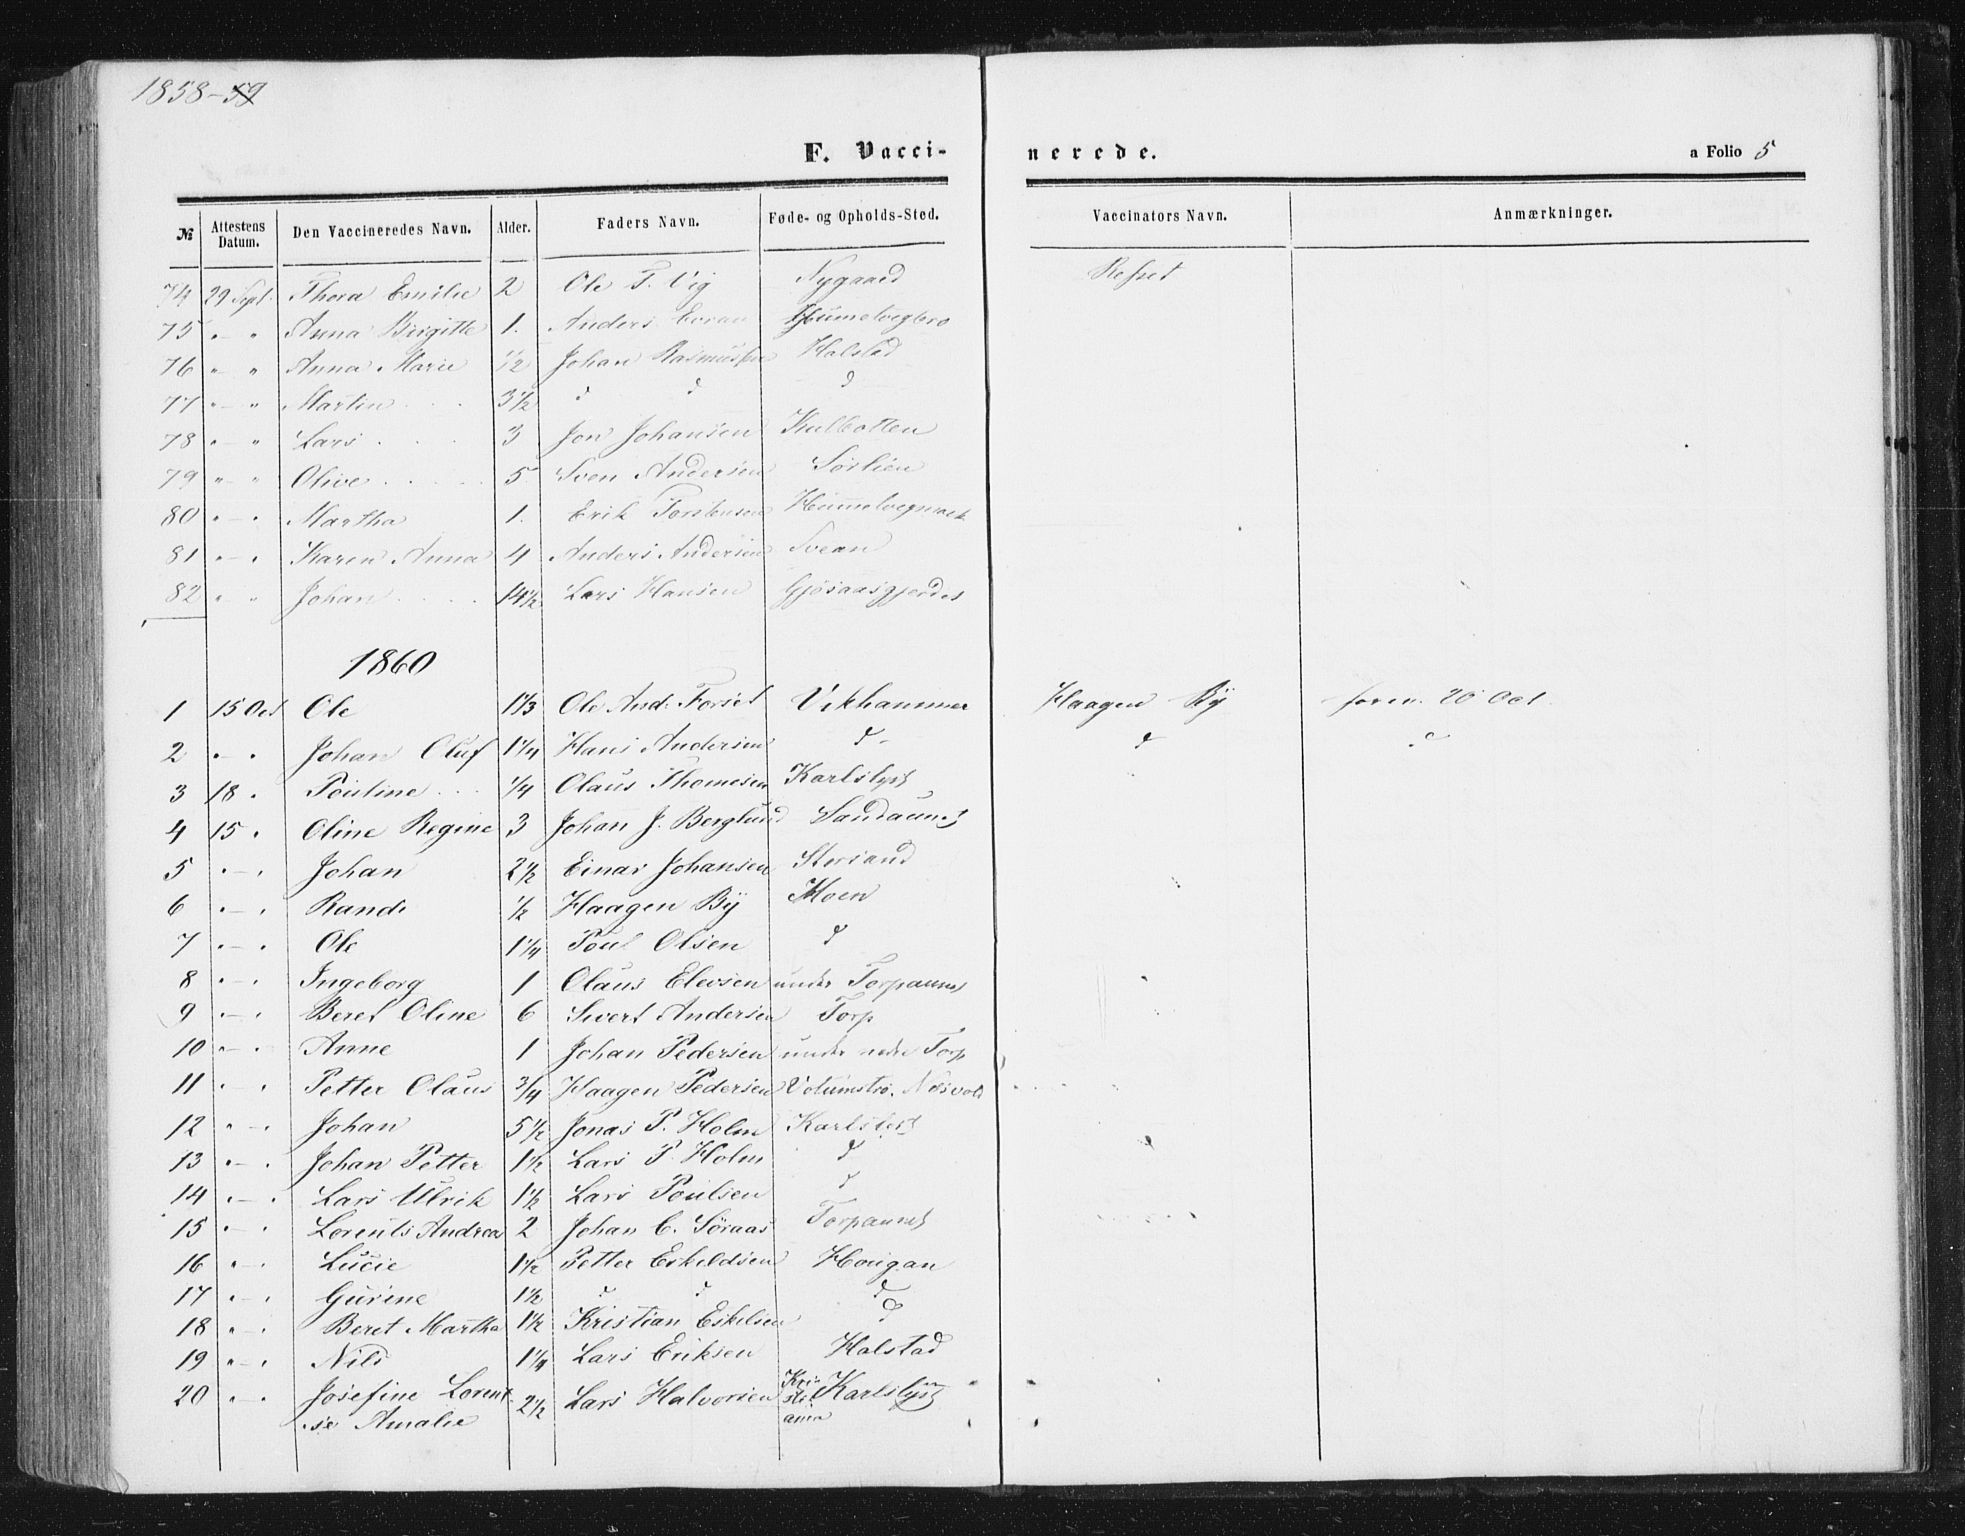 1858-59
F. Vacci-nerede. a Folio 5
№ Attestens Datum. Den Vaccineredes Navn. Alder. Faders Navn. Føde- og Opholds-Sted. Vaccinators Navn. Anmærkninger.
74 29 Sept. Thora Emilie 2 Ole T. Vig Nygaard
75 " - " Anna Birgitte 1. Anders
76 " " Anna Marie 1/2 Johan Rasmussen Halstad
77 " - " Martin 3 1/2 d d d
78 " - " Lars 3 Jon Johansen Kulbotten
79 " - " Olive 5 Sven Andersen Sørlien
80 " - " Martha 1. Erik Torstensen
81 " - " Karen Anna 4 Anders Andersen Svean
82 " " Johan 14 1/2 Lars Hansen Gjøsaasgjerdet
1860
1 15 Oct Ole 1 1/3 Ole And. Forset Vikhammer Haagen By foren. 20 Oct.
2 " - " Johan Oluf 1 1/4 Hans Andersen d - d d
3 18 " Pouline 1/4 Olaus Thomesen Karlslyst
4 15 " Oline Regine 3 Johan J. Berglund Sandaunet
5 " - " Johan 2 1/2 Einar Johansen Storsand
6 " - " Randi 1/2 Haagen By Moen
7 " - " Ole 1 1/4 Poul Olsen d
8 " - " Ingeborg 1 Olaus Elevsen under Torpaunet
9 " - " Beret Oline 6 Sivert Andersen Torp
10 " - " Anne 1 Johan Pedersen under nedre Torp
11 " - " Petter Olaus 3/4 Haagen Pedersen
12 " - " Johan 5 1/2 Jonas P. Holm Karlslyst
13 " - " Johan Petter 1 1/2 Lars P. Holm d
14 " - " Lars Ulrik 1 1/2 Lars Poulsen d
15 " - " Lorents Andreas 2 Johan C. Søraas Torpaunet
16 " - " Lucie 1 1/2 Petter Eskildsen Hønigan
17 " - " Gurine 1 1/2 d d d
18 " - " Beret Martha 1 1/2 Kristian Eskelsen d
19 " - " Nils 1 1/4 Lars Eriksen Halstad
20 " - " Josefine Lorent- 2 1/2 Lars Halvorsen Kri-sti-ania Karlslyst
se Amalie